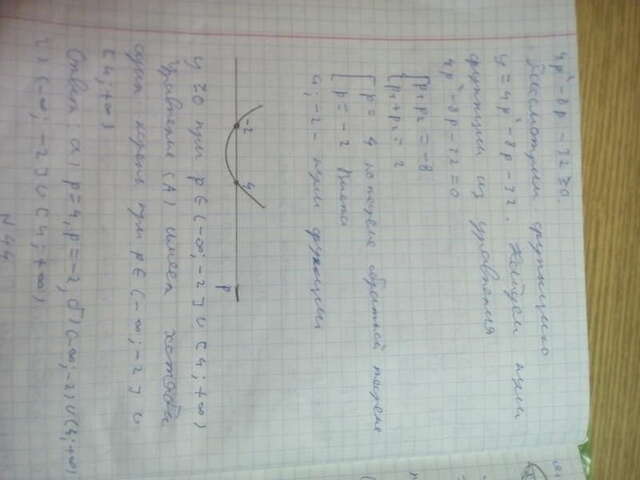 4p² - 8p - 32 ≥ 0.
Рассмотрим функцию
y = 4p² - 8p - 32. Найдем нули
функции из уравнения
4p² - 8p - 32 = 0
{ p₁p₂ = -8
p₁ + p₂ = 2
[ p = 4 по теореме обратной теореме
p = -2 Виета
4; -2 - нули функции
-2 4 p
y ≥ 0 при p ∈ (-∞; -2] ∪ [4; +∞)
Уравнение (A) имеет хотя бы
один корень при p ∈ (-∞; -2] ∪
[4; +∞)
Ответ: а) p = 4, p = -2, б) (-∞; -2) ∪ (4; +∞)
(-∞; -2] ∪ [4; +∞)
N 44